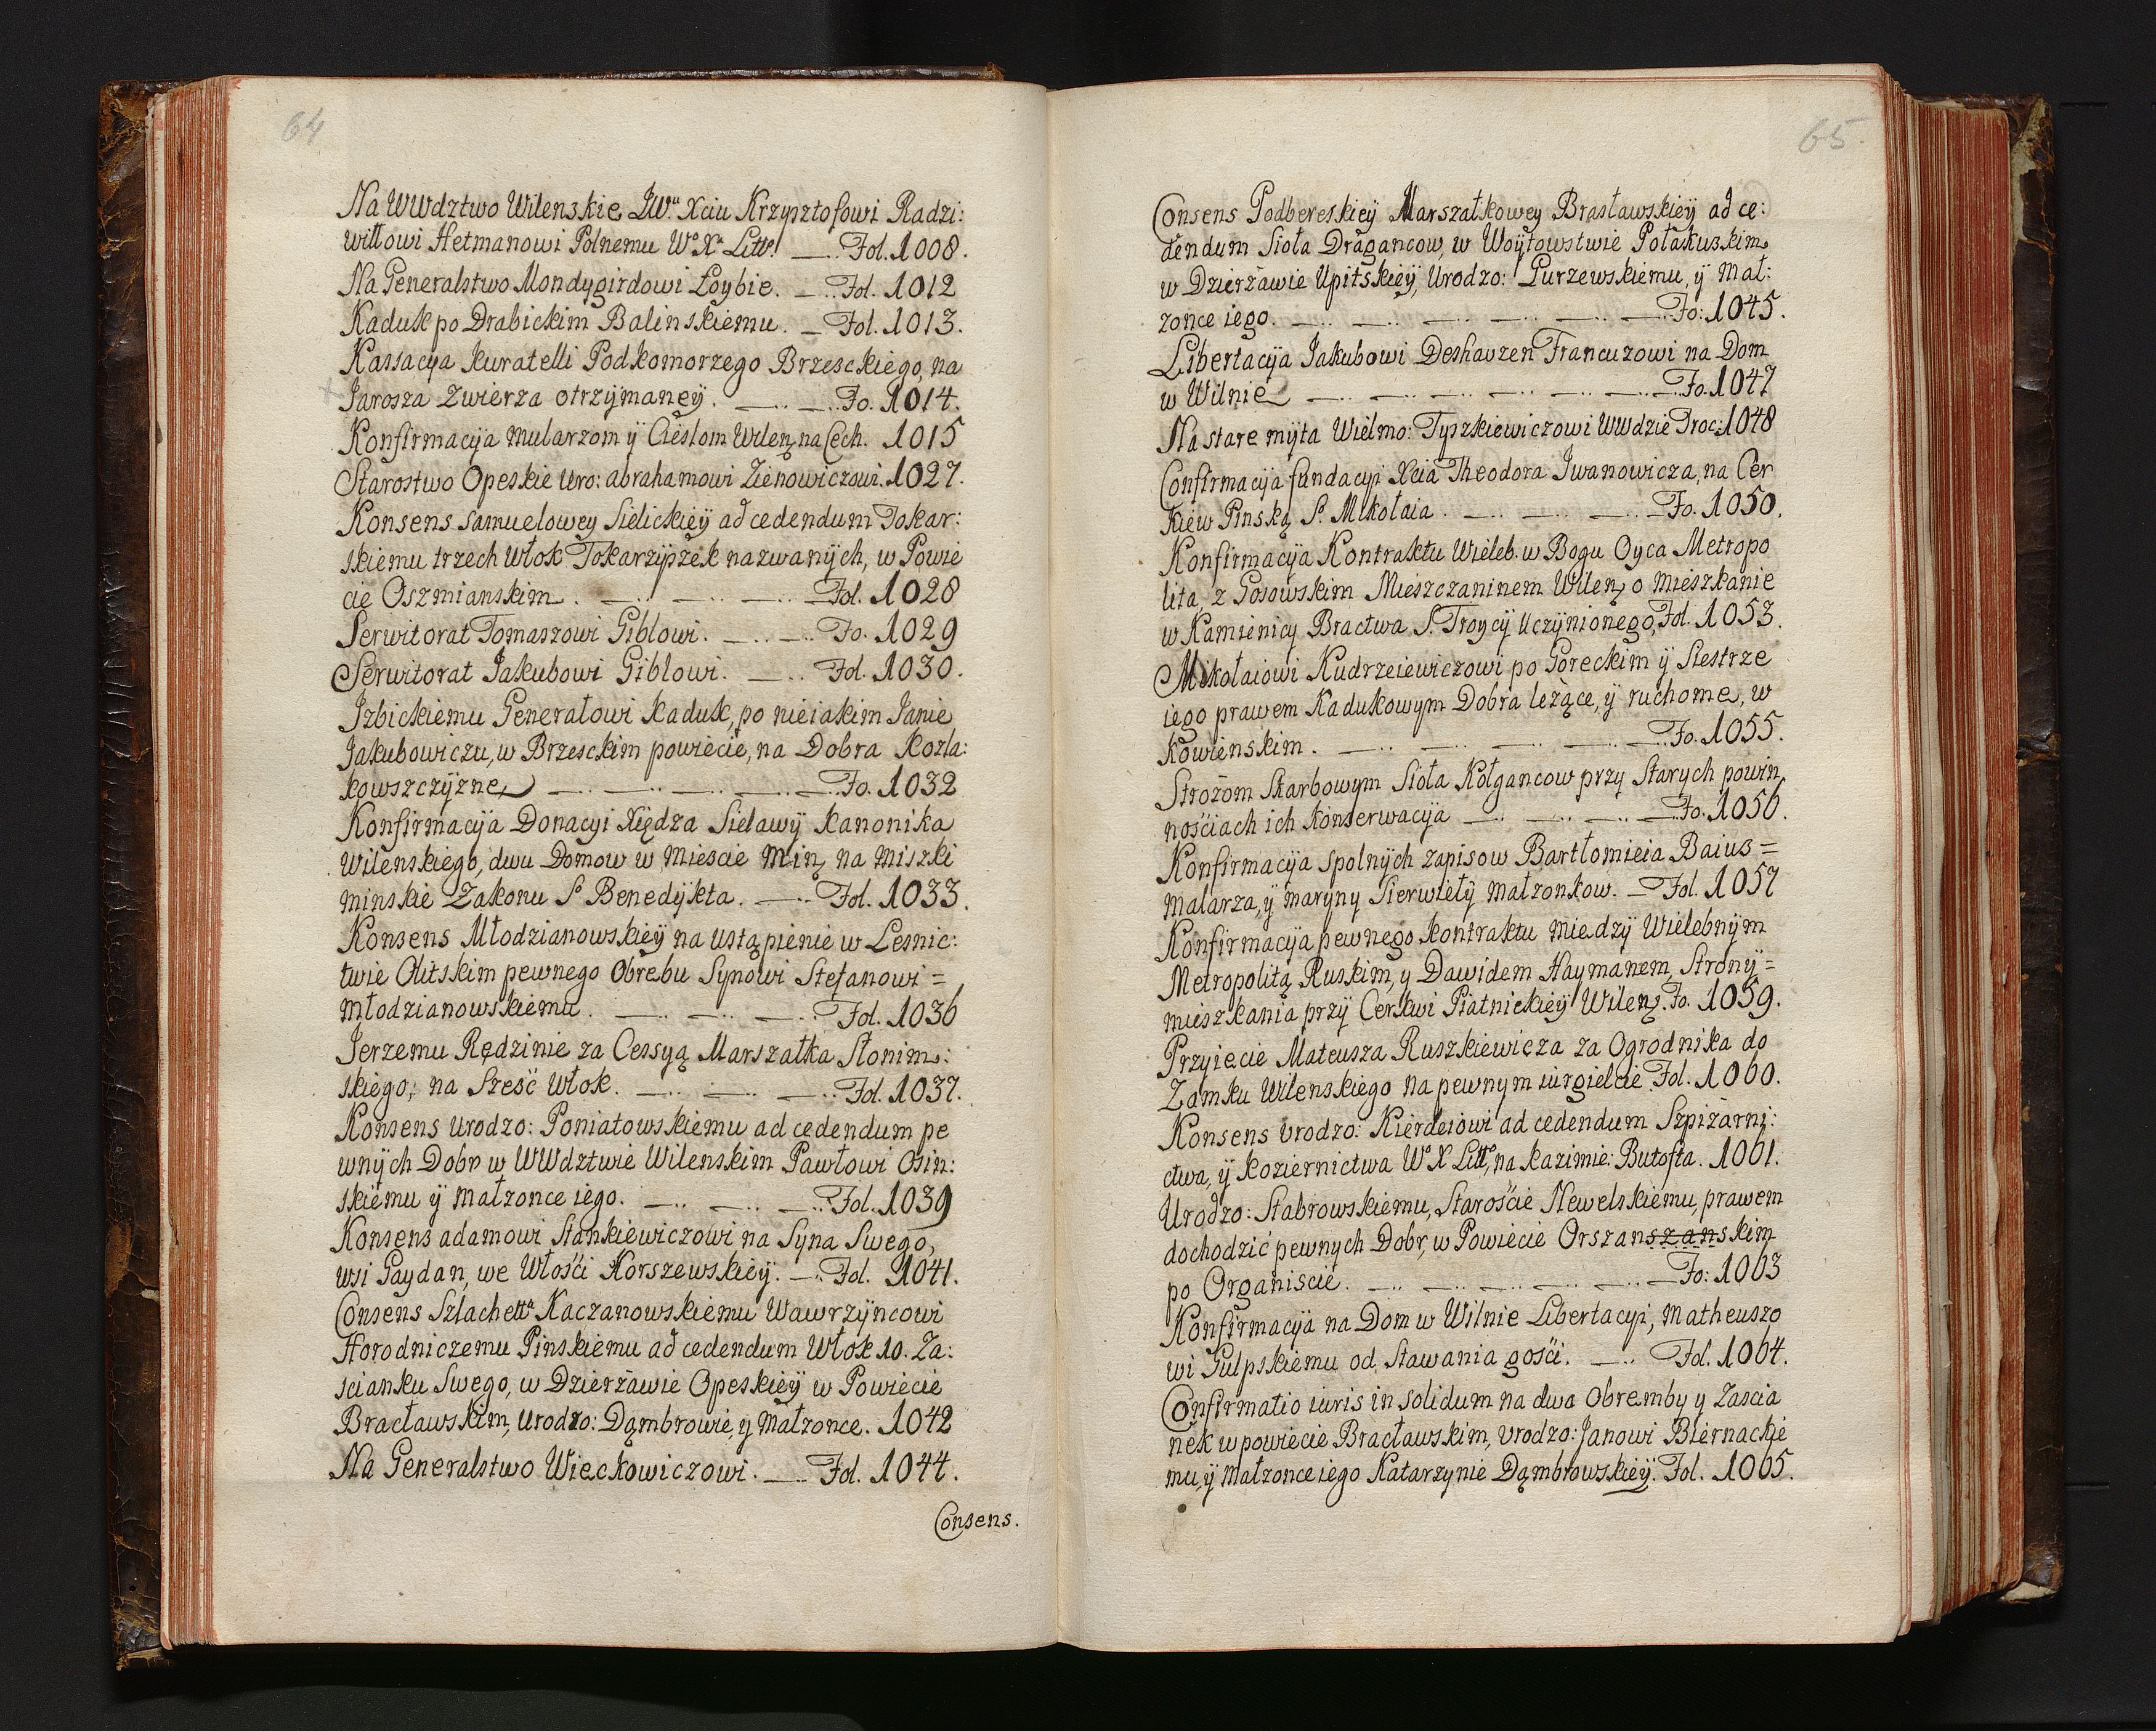 64
Na WWdztwo Wilenskie JWu Xciu Krzysztofowi Radzi:
wiłłowi Hetmanowi Polnemu Wo Xa Litto. Fol. 1008.
Na Generalstwo Mondygirdowi Łoybie. Fol. 1012
Kaduk po Drabickim Balinskiemu. Fol. 1013.
Kassacya kuratelli Podkomorzego Brzesckiego, na
Jarosza Zwierza otrzÿmaneÿ. Fo. 1014.
Konfirmacÿa mularzom ÿ Cieslom Wilen, na Cech. 1015
Starostwo Opeskie Uro: abrahamowi Zienowiczowi. 1027.
Konsens samuelowey Sielickieÿ ad cedendum Tokar:
skiemu trzech Włok Tokarzÿszek nazwanÿch, w Powie
cie Oszmianskim. Fol. 1028
Serwitorat Tomaszowi Giblowi. Fo. 1029
Serwitorat Jakubowi Giblowi. Fol. 1030.
Jzbickiemu Generałowi Kaduk, po nieiakim Janie
Jakubowiczu, w Brzesckim powiecie, na Dobra Kozla:
kowszczÿzne Fo. 1032
Konfirmacÿa Donacyi Xiędza Sielawÿ Kanonika
Wilenskiego, dwu Domow w Miescie Min, na Miszki
minskie Zakonu S. Benedÿkta. Fol. 1033.
Konsens Młodzianowskieÿ na Ustąpienie w Lesnic:
twie Olitskim pewnego Obrebu Synowi Stefanowi =
Młodzianowskiemu. Fol. 1036
Jerzemu Rędzinie za Cessyą Marszałka Słonim:
skiego; na Szesć Włok. Fol. 1037.
Konsens Urodzo: Poniatowskiemu ad cedendum pe
wnÿch Dobr w WWdztwie Wilenskim Pawłowi Osin:
skiemu ÿ małzonce iego. Fol. 1039
Konsens adamowi Stankiewiczowi na Syna Swego,
wsi Gaydan, we Włości Korszewskieÿ. Fol. 1041.
Consens Szlachetta Kaczanowskiemu Wawrzÿncowi
Horodniczemu Pinskiemu ad cedendum Włok 10. Za:
scianku Swego, w Dzierżawie Opeskieÿ w Powiecie
Bracławskim, Urodzo: Dąmbrowie, y Małzonce. 1042
Na Generalstwo Wieckowiczowi. Fol. 1044.
Consens.
65.
Consens Podbereskieÿ Marszałkowey Brasławskieÿ ad ce:
dendum Sioła Dragancow, w Woÿtowstwie Połakuskim
w Dzierżawie Upitskieÿ, Urodzo: Purzewskiemu, ÿ Mał:
zonce iego. Fo: 1045.
Libertacÿa Jakubowi Deshauzen Francuzowi na Dom
w Wilnie Fo. 1047
Na stare mÿta Wielmo: Tyszkiewiczowi WWdzie Troc: 1048
Confirmacÿa fundacyi Xcia Theodora Jwanowicza, na Cer
kiew Pinską S. Mikołaia. Fo. 1050.
Konfirmacÿa Kontraktu Wieleb. w Bogu Oyca Metropo
lita, z Gosowskim Mieszczaninem Wilen, o mieszkanie
w Kamienicy Bractwa S. Troycÿ Uczÿnionego, Fol. 1053.
Mikołaiowi Kudrzeiewiczowi po Goreckim ÿ Siestrze
iego prawem Kadukowym Dobra leżące, ÿ ruchome, w
Kowienskim. Fo. 1055.
Strożom Skarbowym Sioła Kołgancow przy Starych powin
nościach ich Konserwacÿa Fo. 1056.
Konfirmacÿa spolnÿch zapisow Bartłomieia Baius =
Malarza, ÿ maryny Sierwietÿ małzonkow. Fol. 1057
Konfirmacÿa pewnego kontraktu miedzÿ Wielebnÿm
Metropolitą Ruskim, y Dawidem Haymanem, Stronÿ =
mieszkania przÿ Cerkwi Piatnickieÿ Wilen. Fo. 1059.
Przyiecie Mateusza Ruszkiewicza za Ogrodnika do
Zamku Wilenskiego na pewnym iurgielcie. Fol. 1060.
Konsens Urodzo: Kierdeiowi ad cedendum Szpiżarni:
ctwa, ÿ koziernictwa Wo X Litto, na Kazimie: Butofta. 1061.
Urodzo: Stabrowskiemu, Starośćie Newelskiemu, prawem
dochodzić pewnych Dobr, w Powiecie Orszanszanskim
po Organiscie. Fo: 1063
Konfirmacÿa na Dom w Wilnie Libertacyi, Matheuszo
wi Gulpskiemu od Stawania gości. Fol. 1064.
Confirmatio iuris in solidum na dwa Obremby y Zascia
nek w powiecie Bracławskim, Urodzo: Janowi Biernackie
mu, ÿ Małzonce iego Katarzynie Dąmbrowskieÿ. Fol. 1065.